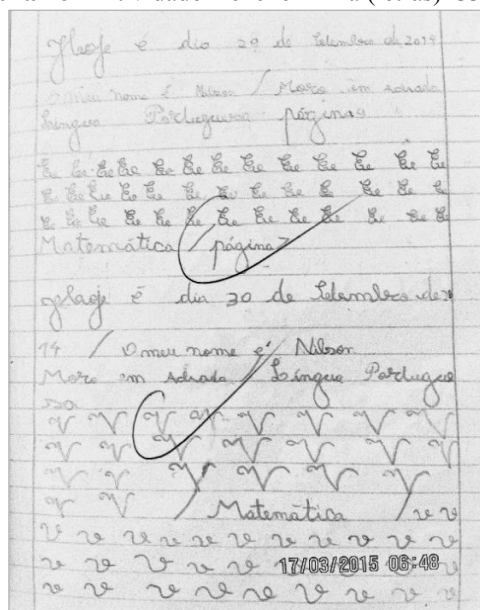 Hoje é dia 29 de Setembro de 2014
o meu nome é Nilson / Moro em Adrada
Lingua Portuguesa página
Ee Ee Ee Ee Ee Ee Ee Ee Ee Ee Ee Ee Ee
Ee Ee Ee Ee Ee Ee Ee Ee Ee Ee Ee Ee e
Ee Ee Ee Ee Ee Ee Ee Ee Ee Ee Ee Ee Ee
Matemática / página 7
Hoje é dia 30 de Setembro de 20
14 / O meu nome é Nilson
Moro em Adrada / Língua Portugue
sa
V V V V V V V V
V V V V V V V
V V V V V V V
V V / Matemática / v v
v v v v v v v v v v v v
v v v v v v v
17/03/2015 06:48
v v v v v v v v v v